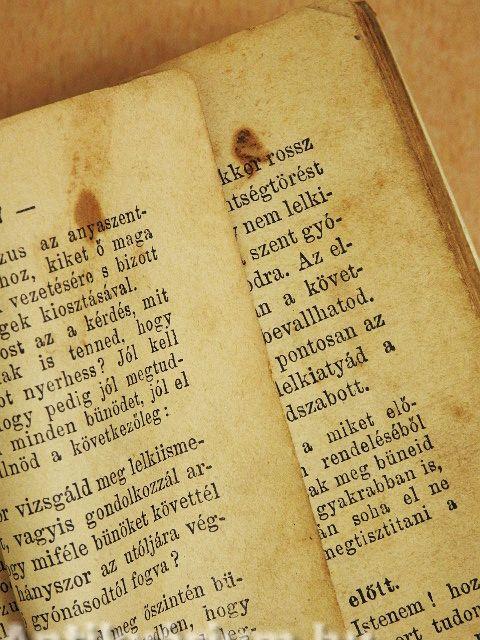 –
zus az anyaszent-
hoz, kiket ő maga
vezetésére s bizott
gek kiosztásával.
ost az a kérdés, mit
ak is tenned, hogy
ot nyerhess? Jól kell
ogy pedig jól megtud-
minden bünödet, jól el
lnöd a következőleg:
or vizsgáld meg lelkiisme-
t, vagyis gondolkozzál ar-
gy miféle bünöket követtél
hányszor az utóljára vég-
gyónásodtól fogva?
meg őszintén bü-
hogy
kkor rossz
ntségtörést
nem lelki-
szent gyó-
ódra. Az el-
n a követ-
bevallhatod.
pontosan az
lelkiatyád a
dszabott.
a miket elő-
rendeléséből
ak meg büneid
gyakrabban is,
án soha el ne
megtisztitani a
előtt.
Istenem! hoz
ért tudom